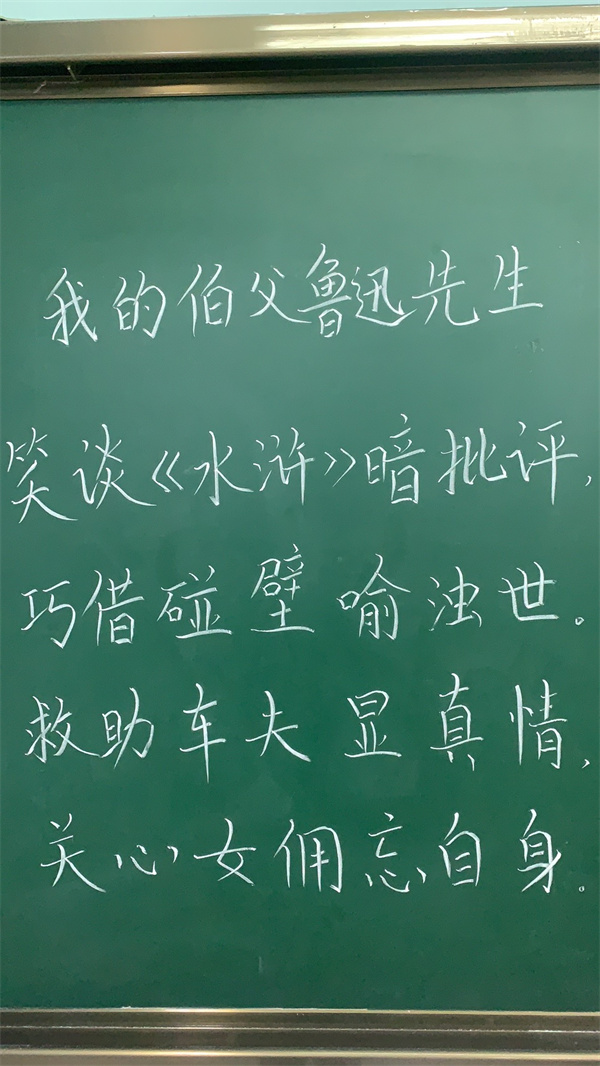 我的伯父鲁迅先生
笑谈《水浒》暗批评,
巧借碰壁喻浊世。
救助车夫显真情,
关心女佣忘自身。